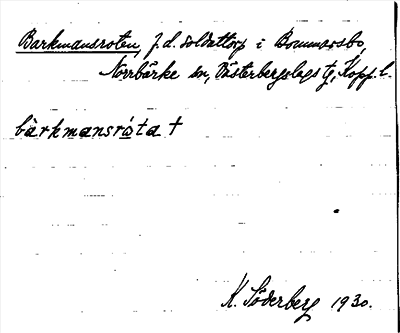 Barkmansroten, f.d. soldattorp i Bommarsbo,
Norrbärke sn, Västerbergslags tg, Kopp. l.
bàrkmansrota †
K. Söderberg 1930.